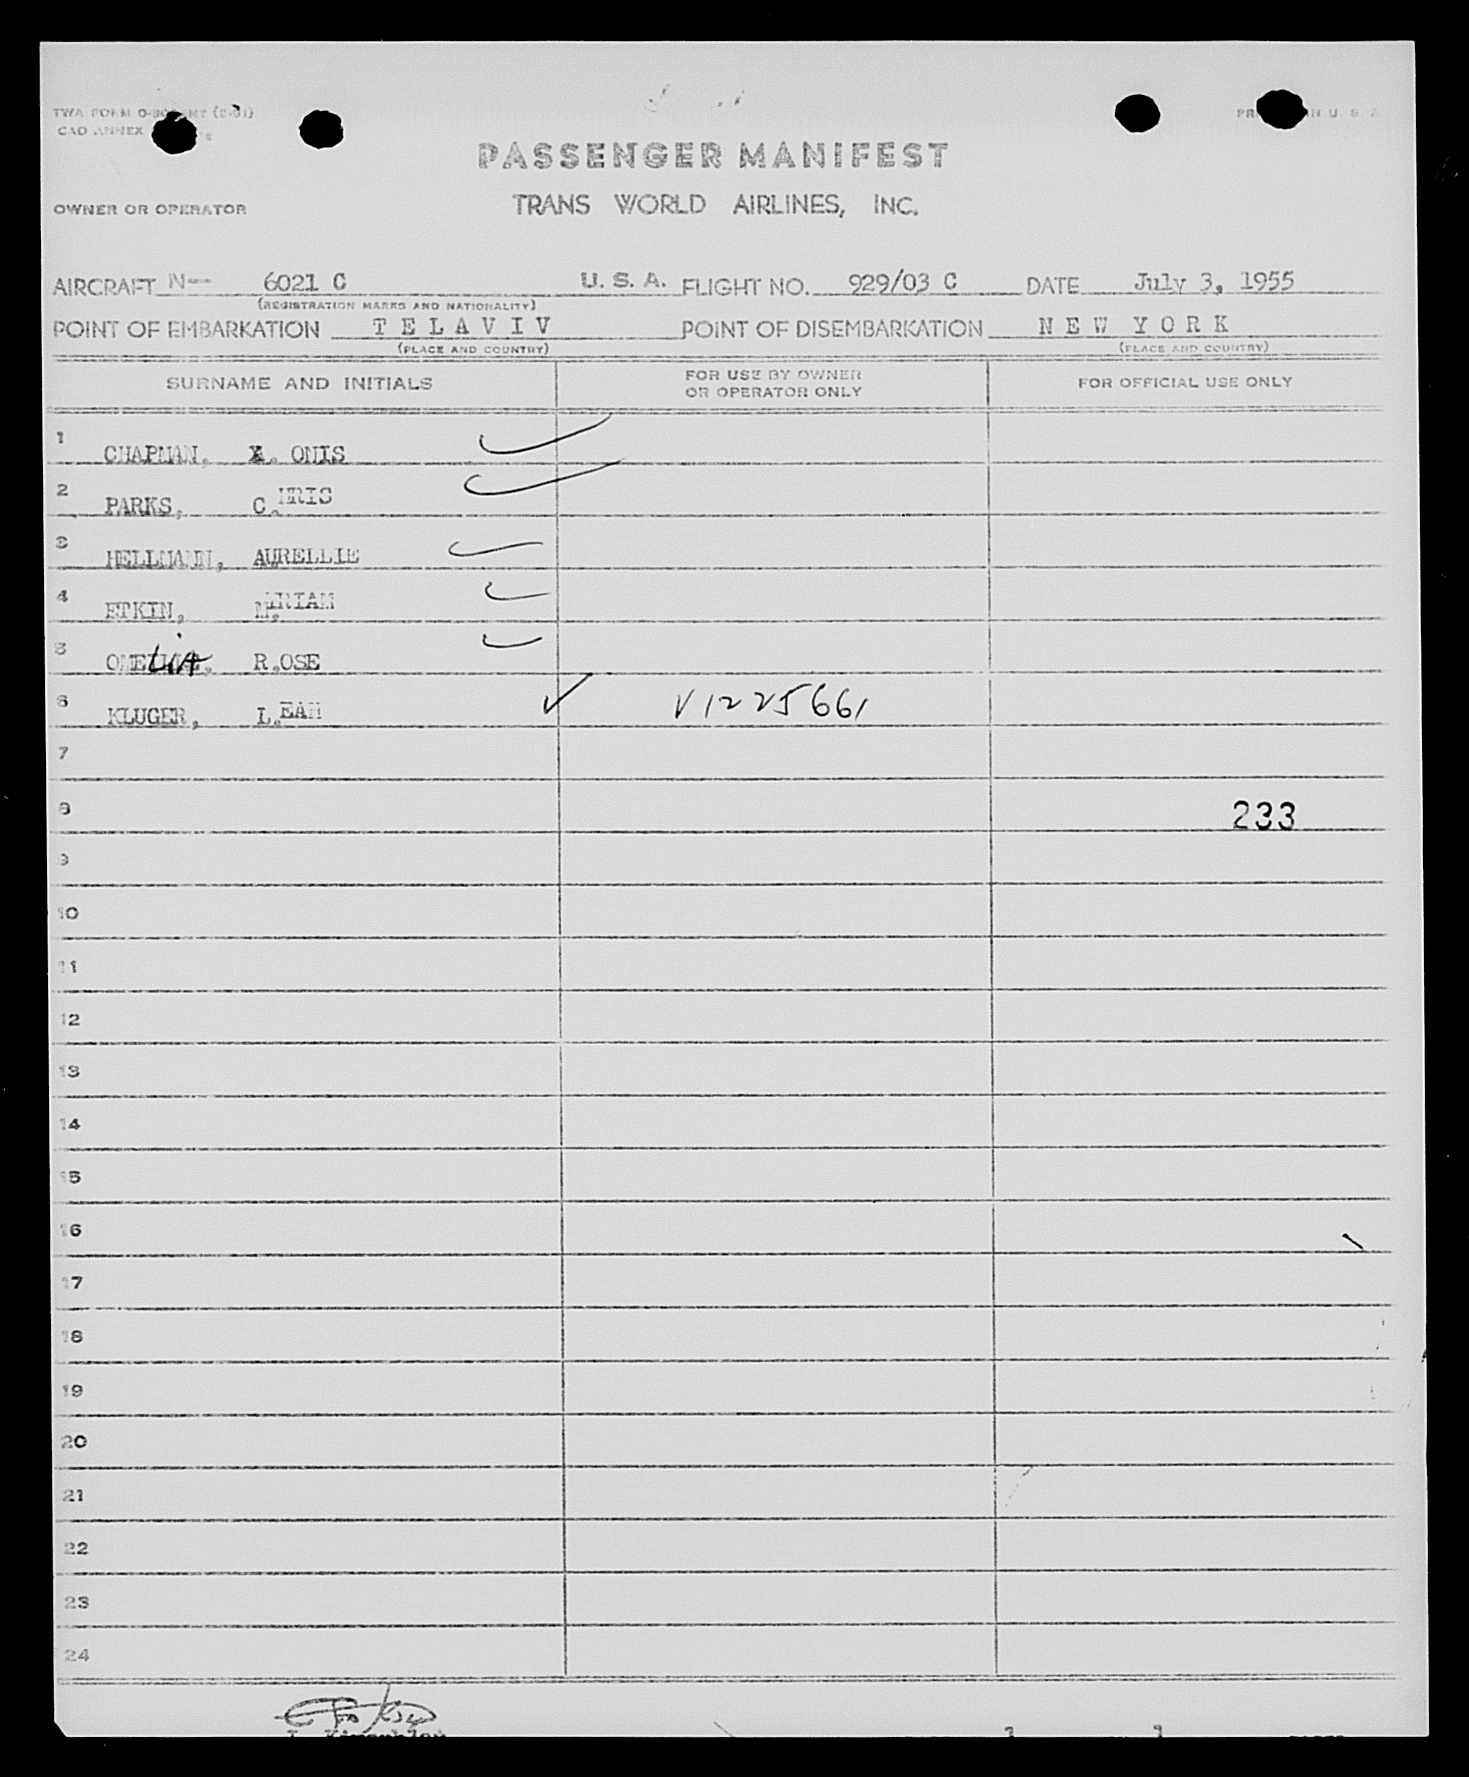 PASSENGER MANIFEST
OWNER OR OPERATOR TRANS WORLD AIRLINES, INC.
AIRCRAFT N-- 6021 C U. S. A. FLIGHT NO. 929/03 C DATE July 3, 1955
(REGISTRATION MARKS AND NATIONALITY)
POINT OF EMBARKATION T E L A V I V POINT OF DISEMBARKATION N E W Y O R K
(PLACE AND COUNTRY) (PLACE AND COUNTRY)
SURNAME AND INITIALS FOR USE BY OWNER OR OPERATOR ONLY FOR OFFICIAL USE ONLY
1 CHAPMAN, X. ONIS
2 PARKS, C.HRIS
3 HELLMANN, AURELLIE
4 ETKIN, M.IRIAM
5 R.OSE
6 KLUGER, L.EAH V1225661
7
8 233
9
10
11
12
13
14
15
16
17
18
19
20
21
22
23
24